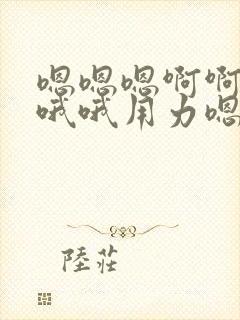 嗯嗯嗯啊啊
哦哦用力嗯
陸莊